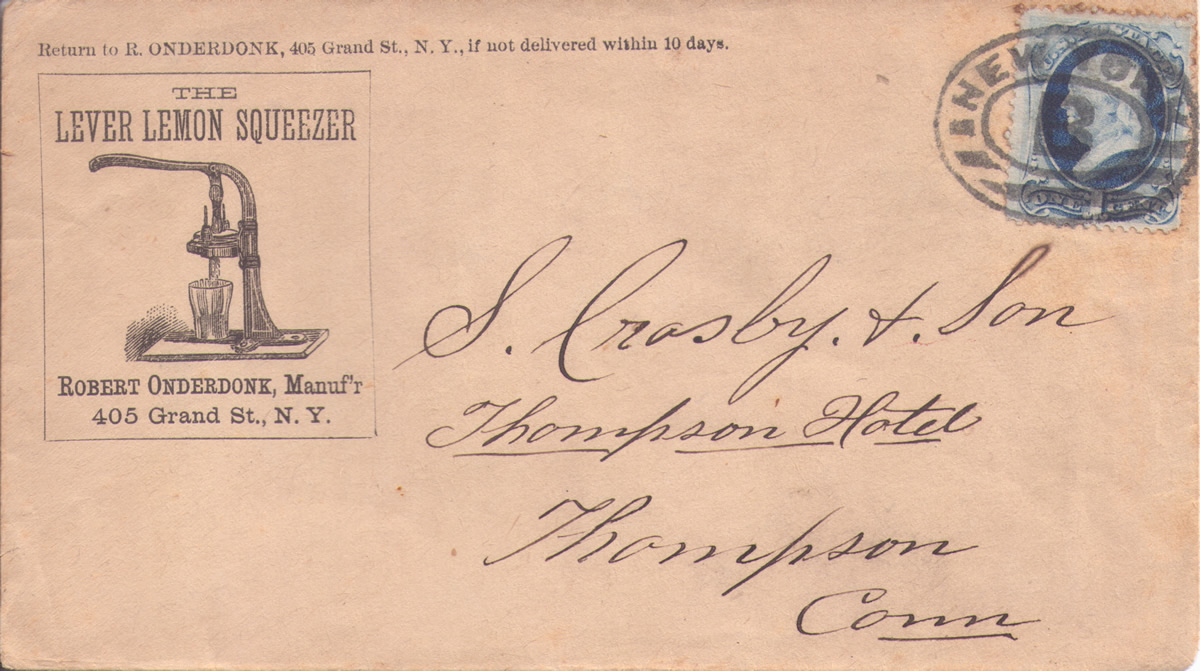 Return to R. ONDERDONK, 405 Grand St., N. Y., if not delivered within 10 days.
THE
LEVER LEMON SQUEEZER
ROBERT ONDERDONK, Manuf'r
405 Grand St., N. Y.
NEW YORK
R
ONE 1 CENT
S. Crosby. & . Son
Thompson Hotel
Thompson
Conn